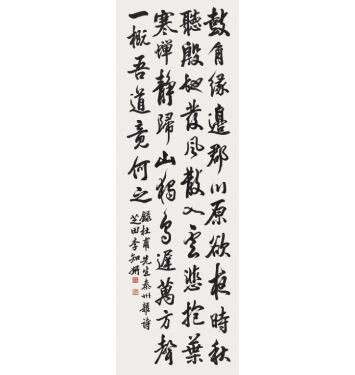 鼓角緣邊郡川原欲夜時秋
聽殷地發風散入雲悲抱葉
寒蟬靜歸山獨鳥遲萬方聲
一概吾道竟何之
錄杜甫先生秦州雜詩
芝田李知